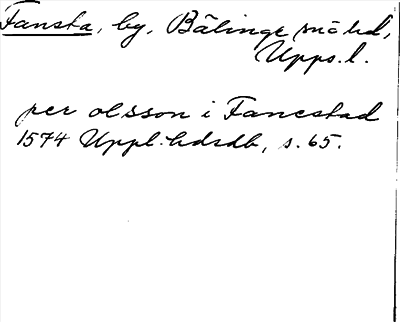 Fansta, by, Bälinge sn o hd,
Upps. l.
per olsson i Fanestad
1574 Uppl. hdrdb, s. 65.